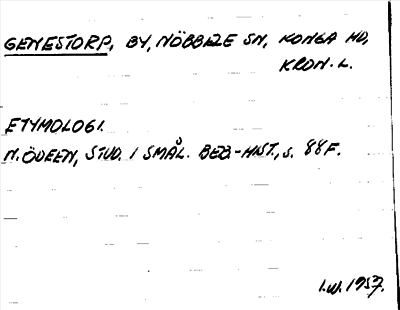 GENESTORP, BY, NÖBBELE SN, KONGA HD,
KRON. L.
ETYMOLOGI.
N. ÖDEEN, STUD. I SMÅL. BEB-HIST., S. 88 F.
I.W. 1957.